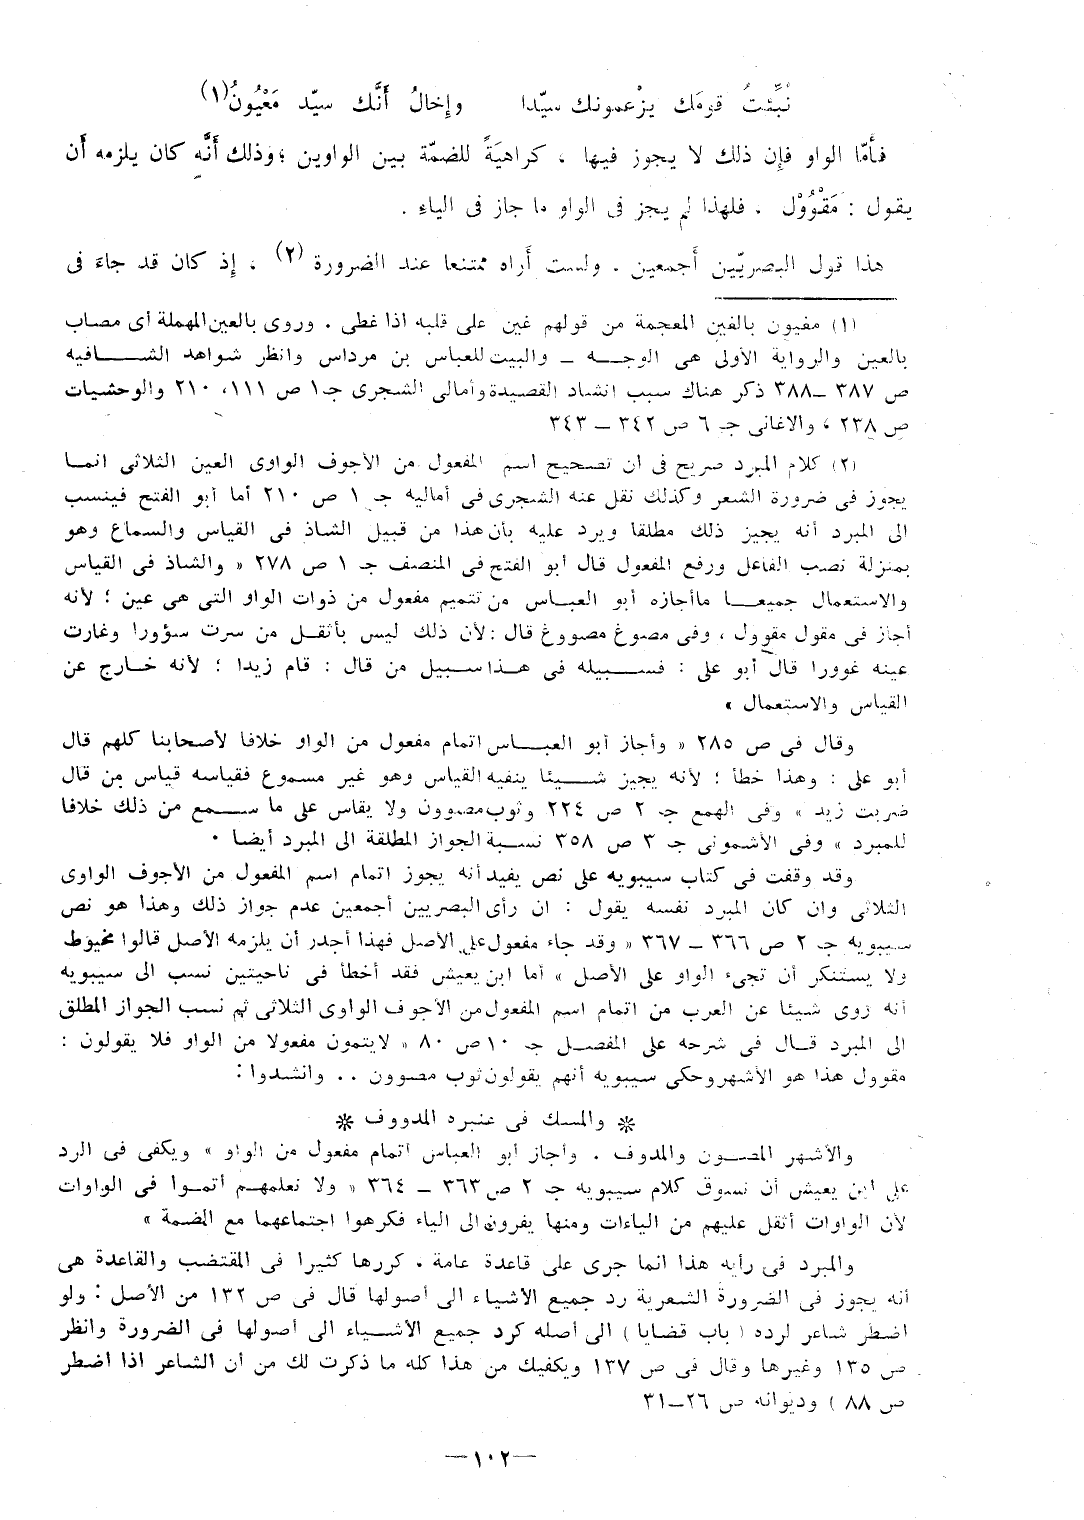 نُبِّئتُ قومَك يزْعمونك سيّدا وإخالُ أَنَّك سيّد مَغْيُونُ(١)
فأَمّا الواو فإن ذلك لا يجوز فيها ، كراهيَةً للضمّة بين الواوين ؛ وذلك أَنَّه كان يلزمه أَن
يقول : مَقْوُوْل . فلهذا لم يجز فى الواو ما جاز فى الياءِ .
هذا قول البصريّين أَجمعين . ولست أَراه ممتنعا عند الضرورة (٢) ، إِذ كان قد جاءَ فى
(١) مغيون بالغين المعجمة من قولهم غين على قلبه اذا غطى . وروى بالعين المهملة أى مصاب
بالعين والرواية الأولى هى الوجه ـ والبيت للعباس بن مرداس وانظر شواهد الشافيه
ص ٣٨٧ ـ ٣٨٨ ذكر هناك سبب انشاد القصيدة وأمالى الشجرى جـ١ ص ١١١، ٢١٠ والوحشيات
ص ٢٣٨ ، والاغانى جـ ٦ ص ٣٤٢ ـ ٣٤٣
(٢) كلام المبرد صريح فى ان تصحيح اسم المفعول من الأجوف الواوى العين الثلاثى انما
يجوز فى ضرورة الشعر وكذلك نقل عنه الشجرى فى أماليه جـ ١ ص ٢١٠ أما أبو الفتح فينسب
الى المبرد أنه يجيز ذلك مطلقا ويرد عليه بأن هذا من قبيل الشاذ فى القياس والسماع وهو
بمنزلة نصب الفاعل ورفع المفعول قال أبو الفتح فى المنصف جـ ١ ص ٢٧٨ « والشاذ فى القياس
والاستعمال جميعا ما أجازه أبو العباس من تتميم مفعول من ذوات الواو التى هى عين ؛ لأنه
أجاز فى مقول مقوول ، وفى مصوغ مصووغ قال : لأن ذلك ليس بأثقل من سرت سؤورا وغارت
عينه غوورا قال أبو على : فسبيله فى هذا سبيل من قال : قام زيدا ؛ لأنه خارج عن
القياس والاستعمال »
وقال فى ص ٢٨٥ « وأجاز أبو العباس اتمام مفعول من الواو خلافا لأصحابنا كلهم قال
أبو على : وهذا خطأ ؛ لأنه يجيز شيئا ينفيه القياس وهو غير مسموع فقياسه قياس من قال
ضربت زيد » وفى الهمع جـ ٢ ص ٢٢٤ وثوب مصوون ولا يقاس على ما سمع من ذلك خلافا
للمبرد » وفى الأشمونى جـ ٣ ص ٣٥٨ نسبة الجواز المطلقة الى المبرد أيضا ٠
وقد وقفت فى كتاب سيبويه على نص يفيد أنه يجوز اتمام اسم المفعول من الأجوف الواوى
الثلاثى وان كان المبرد نفسه يقول : ان رأى البصريين أجمعين عدم جواز ذلك وهذا هو نص
سيبويه جـ ٢ ص ٣٦٦ ـ ٣٦٧ « وقد جاء مفعول على الأصل فهذا أجدر أن يلزمه الأصل قالوا مخيوط
ولا يستنكر أن تجىء الواو على الأصل » أما ابن يعيش فقد أخطأ فى ناحيتين نسب الى سيبويه
أنه روى شيئا عن العرب من اتمام اسم المفعول من الأجوف الواوى الثلاثى ثم نسب الجواز المطلق
الى المبرد قال فى شرحه على المفصل جـ ١٠ ص ٨٠ « لايتمون مفعولا من الواو فلا يقولون :
مقوول هذا هو الأشهر وحكى سيبويه أنهم يقولون ثوب مصوون . . وانشدوا :
* والمسك فى عنبره المدووف *
والأشهر المصون والمدوف . وأجاز أبو العباس اتمام مفعول من الواو » ويكفى فى الرد
على ابن يعيش أن نسوق كلام سيبويه جـ ٢ ص ٣٦٣ ـ ٣٦٤ « ولا نعلمهم أتموا فى الواوات
لأن الواوات أثقل عليهم من الياءات ومنها يفرون الى الياء فكرهوا اجتماعهما مع الضمة »
والمبرد فى رأيه هذا انما جرى على قاعدة عامة ، كررها كثيرا فى المقتضب والقاعدة هى
أنه يجوز فى الضرورة الشعرية رد جميع الأشياء الى أصولها قال فى ص ١٣٢ من الأصل : ولو
اضطر شاعر لرده ( باب قضايا ) الى أصله كرد جميع الأشياء الى أصولها فى الضرورة وانظر
ص ١٣٥ وغيرها وقال فى ص ١٣٧ ويكفيك من هذا كله ما ذكرت لك من أن الشاعر اذا اضطر
ص ٨٨ ) وديوانه ص ٢٦ـ٣١
—١٠٢—